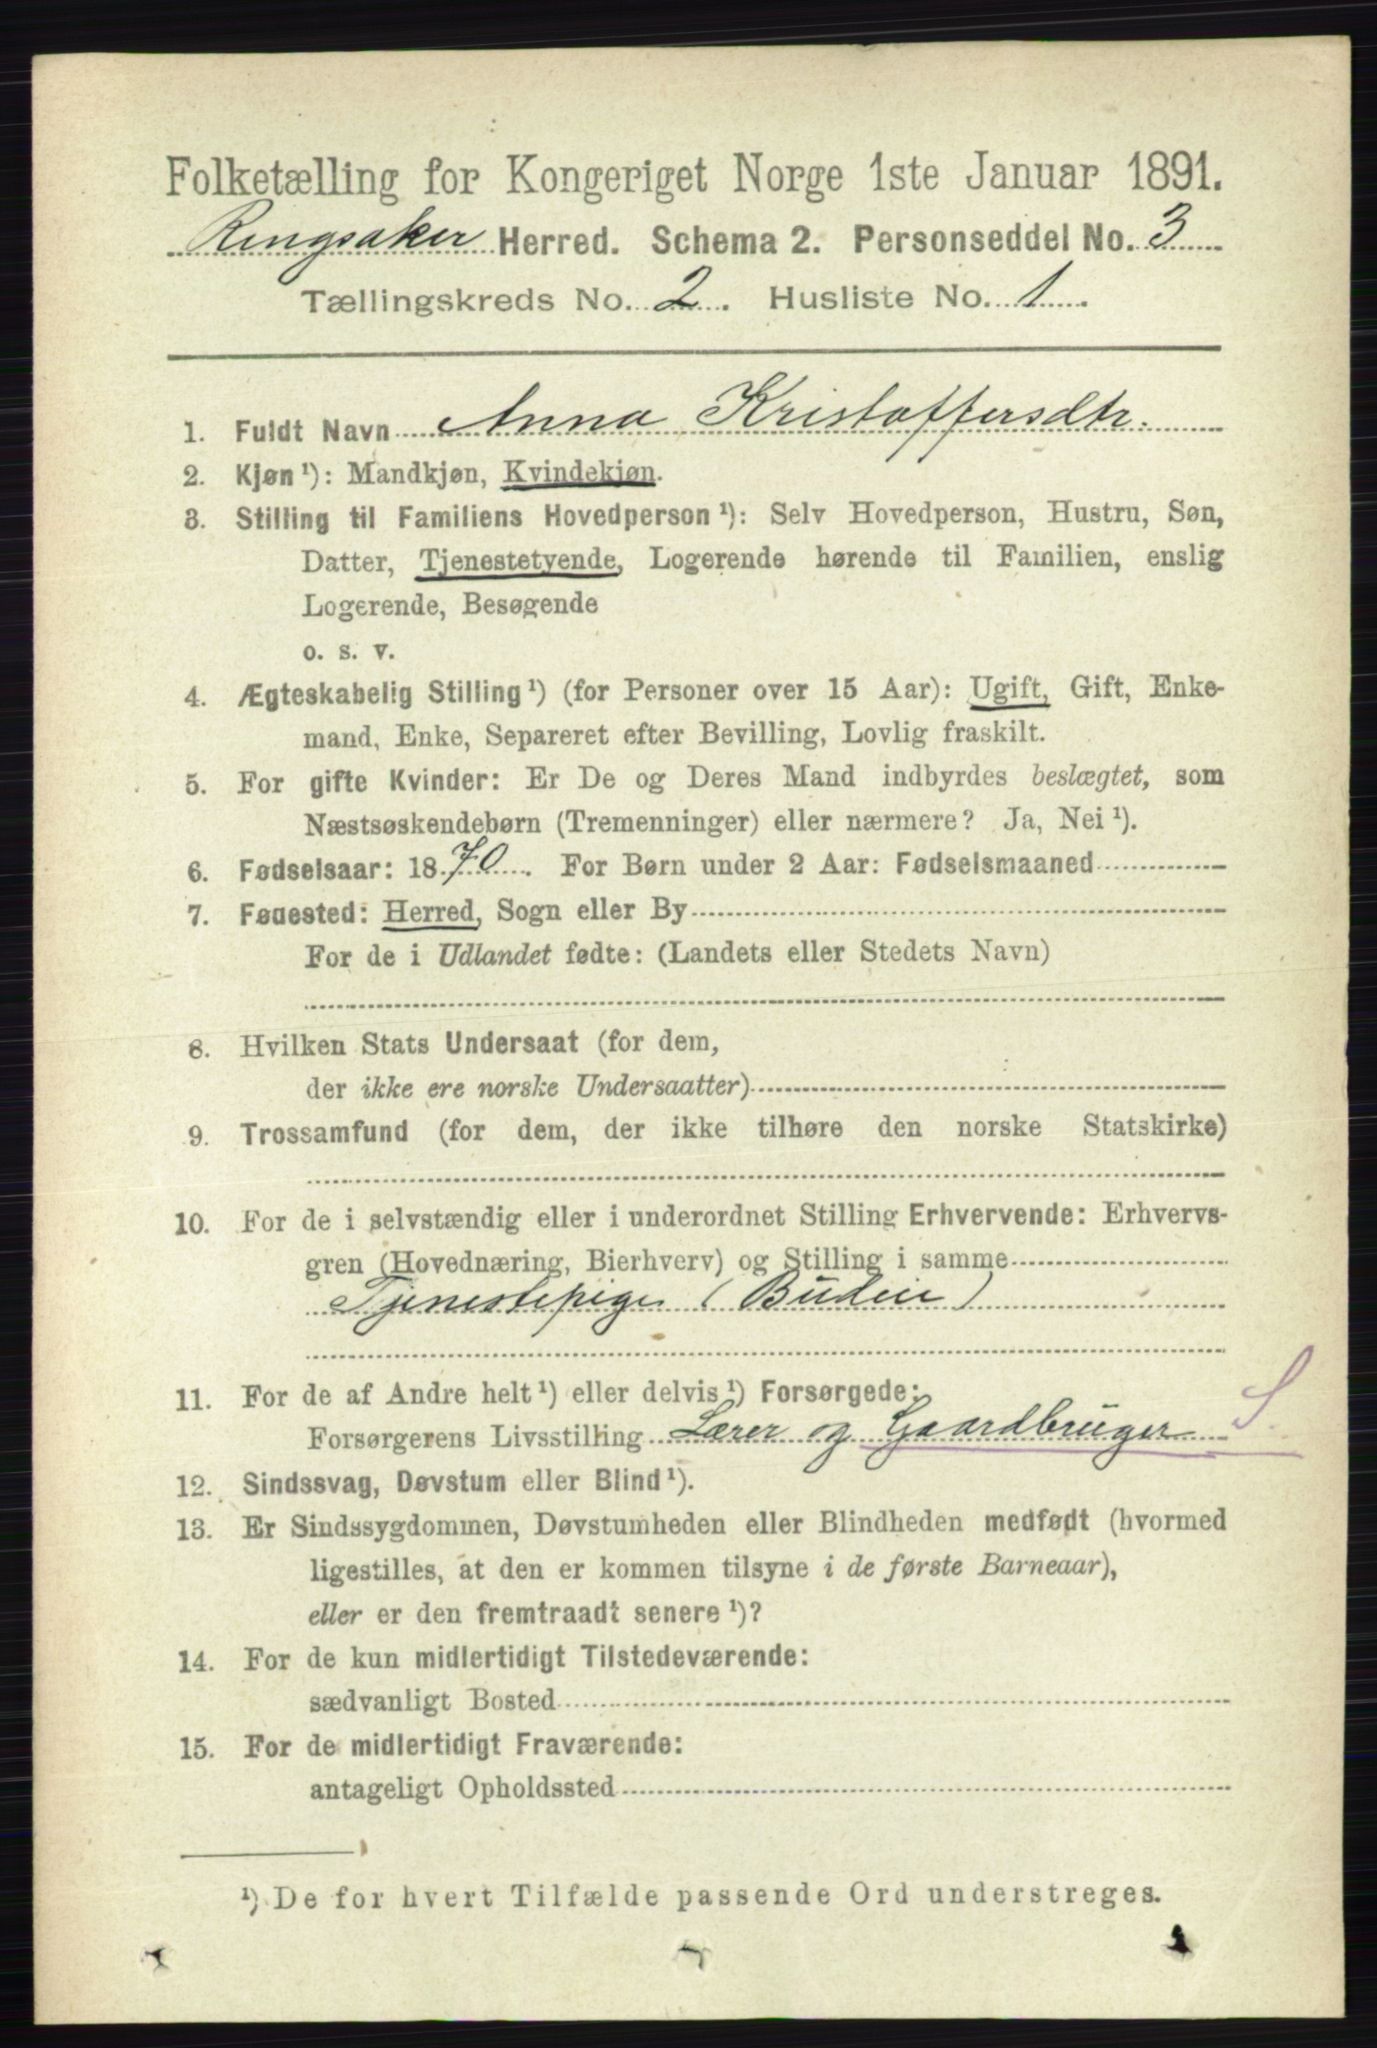 Folketælling for Kongeriget Norge 1ste Januar 1891.
Ringsaker Herred. Schema 2. Personseddel No. 3
Tællingskreds No. 2. Husliste No. 1.
1. Fuldt Navn Anna Kristoffersdtr.
2. Kjøn ¹): Mandkjøn, Kvindekjøn.
3. Stilling til Familiens Hovedperson ¹): Selv Hovedperson, Hustru, Søn,
Datter, Tjenestetyende, Logerende hørende til Familien, enslig
Logerende, Besøgende
o. s. v.
4. Ægteskabelig Stilling ¹) (for Personer over 15 Aar): Ugift, Gift, Enke-
mand, Enke, Separeret efter Bevilling, Lovlig fraskilt.
5. For gifte Kvinder: Er De og Deres Mand indbyrdes beslægtet, som
Næstsøskendebørn (Tremenninger) eller nærmere? Ja, Nei ¹).
6. Fødselsaar: 1870. For Børn under 2 Aar: Fødselsmaaned
7. Fødested: Herred, Sogn eller By
For de i Udlandet fødte: (Landets eller Stedets Navn)
8. Hvilken Stats Undersaat (for dem,
der ikke ere norske Undersaatter)
9. Trossamfund (for dem, der ikke tilhøre den norske Statskirke)
10. For de i selvstændig eller i underordnet Stilling Erhvervende: Erhvervs-
gren (Hovednæring, Bierhverv) og Stilling i samme
Tjenestepige (Budeie)
11. For de af Andre helt ¹) eller delvis ¹) Forsørgede:
Forsørgerens Livsstilling Lærer og Gaardbruger S.
12. Sindssvag, Døvstum eller Blind ¹).
13. Er Sindssygdommen, Døvstumheden eller Blindheden medfødt (hvormed
ligestilles, at den er kommen tilsyne i de første Barneaar),
eller er den fremtraadt senere ¹)?
14. For de kun midlertidigt Tilstedeværende:
sædvanligt Bosted
15. For de midlertidigt Fraværende:
antageligt Opholdssted
¹) De for hvert Tilfælde passende Ord understreges.